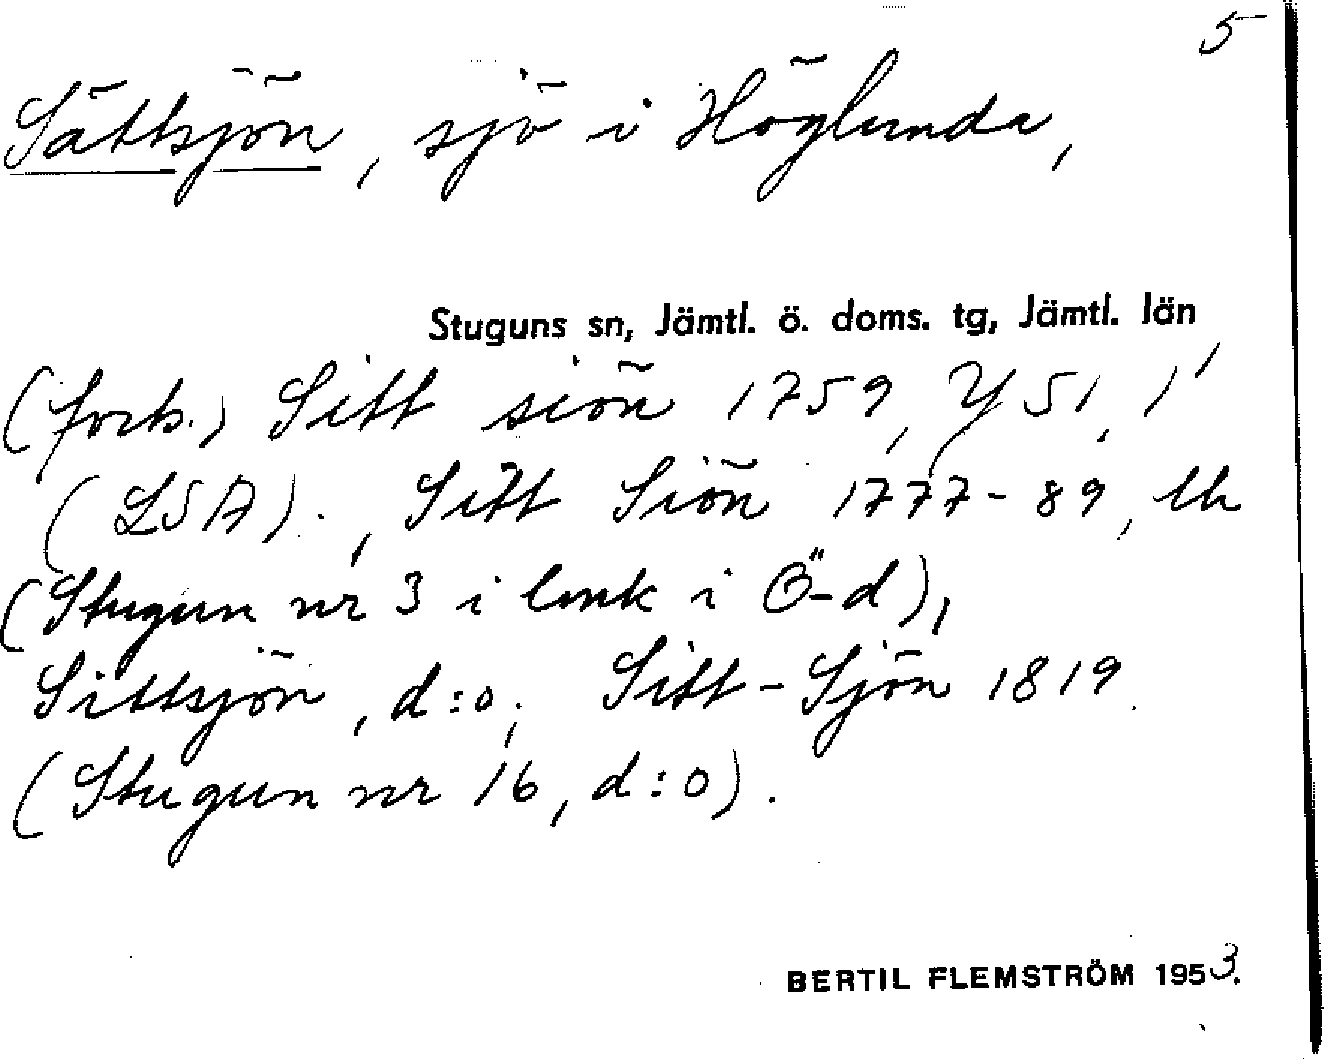 5
Sättsjön, sjö i Höglunda,
Stuguns sn, Jämtl. ö. doms. tg, Jämtl. län
(forts.) Sitt siön 1759, Y 51, 1'
(LSA)., Sitt Siön 1777-89, lh
(Stugun nr 3 i lmk i Ö-d),
Sittsjön, d:o, Sitt-Sjön 1819
(Stugun nr 16, d:o).
BERTIL FLEMSTRÖM 1953.